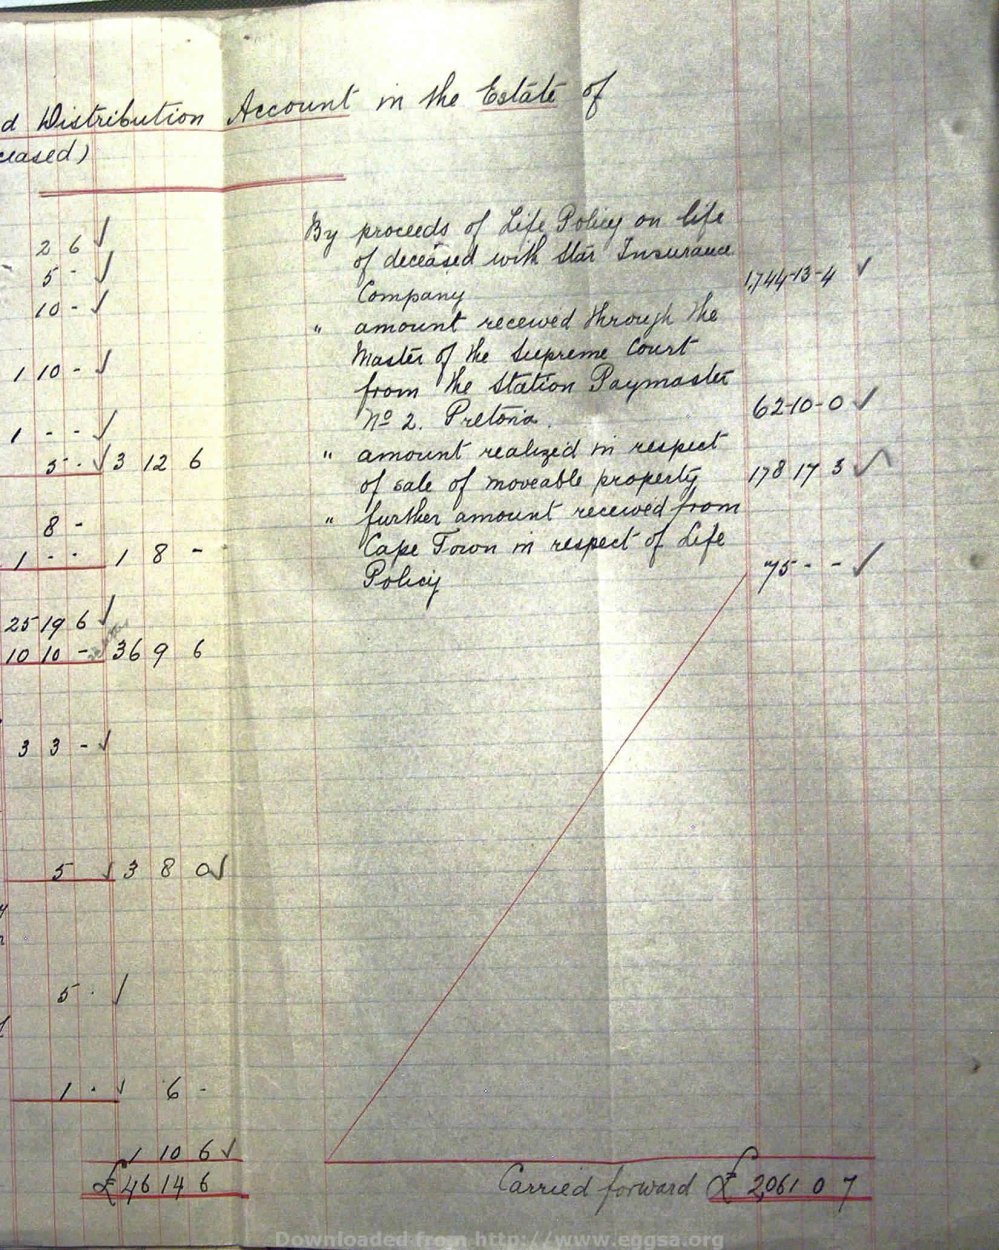 d Distribution Account in the Estate of
ceased)
2 6 ✓
5 - ✓
10 - ✓
1 10 - ✓
1 - - ✓
5 - ✓ 3 12 6
8 -
1 - - 1 8 -
25 19 6 ✓
10 10 - 36 9 6
3 3 - ✓
5 ✓ 3 8 0 ✓
5 . ✓
1 . ✓ 6 -
1 10 6 ✓
£46 14 6
By proceeds of Life Policy on life
of deceased with Star Insurance
Company 1,744-13-4 ✓
" amount received through the
Master of the Supreme Court
from the Station Paymaster
No 2. Pretoria. 62-10-0 ✓
" amount realized in respect
of sale of moveable property 178 17 3 ✓
" further amount received from
Cape Town in respect of Life
Policy 75 - - ✓
Carried forward £ 2,061 0 7
Downloaded from http://www.eggsa.org